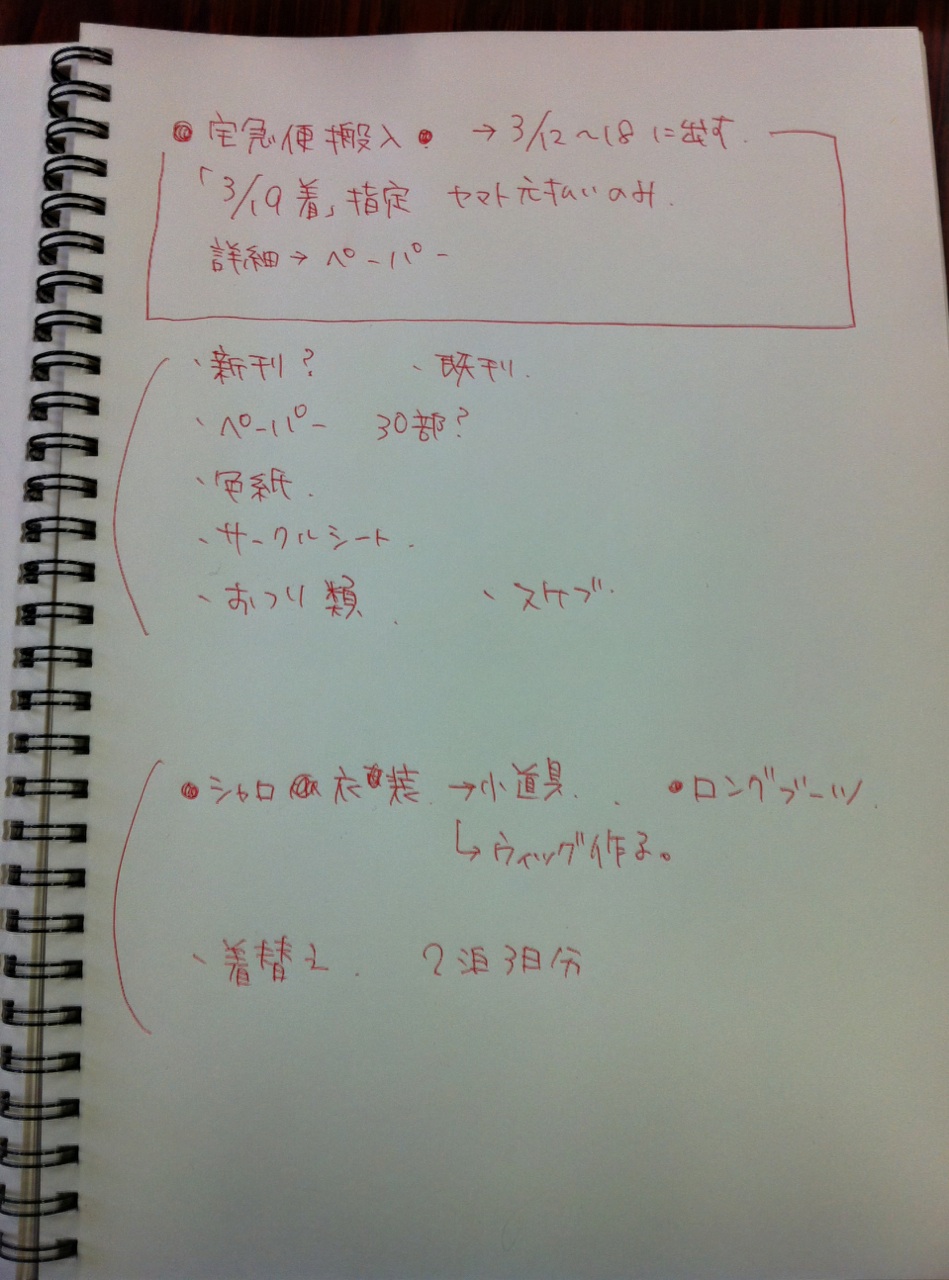 ● 宅急便搬入 ● → 3/12〜18 に出す.
「3/19 着」指定 ヤマト元払いのみ.
詳細→ペーパー
・新刊? ・既刊.
・ペーパー 30部?
・色紙.
・サークルシート.
・おつり類. ・スケブ.
●シャロ 衣装. →小道具. . ●ロングブーツ.
↳ウィッグ作る。
・着替え. 2泊3日分